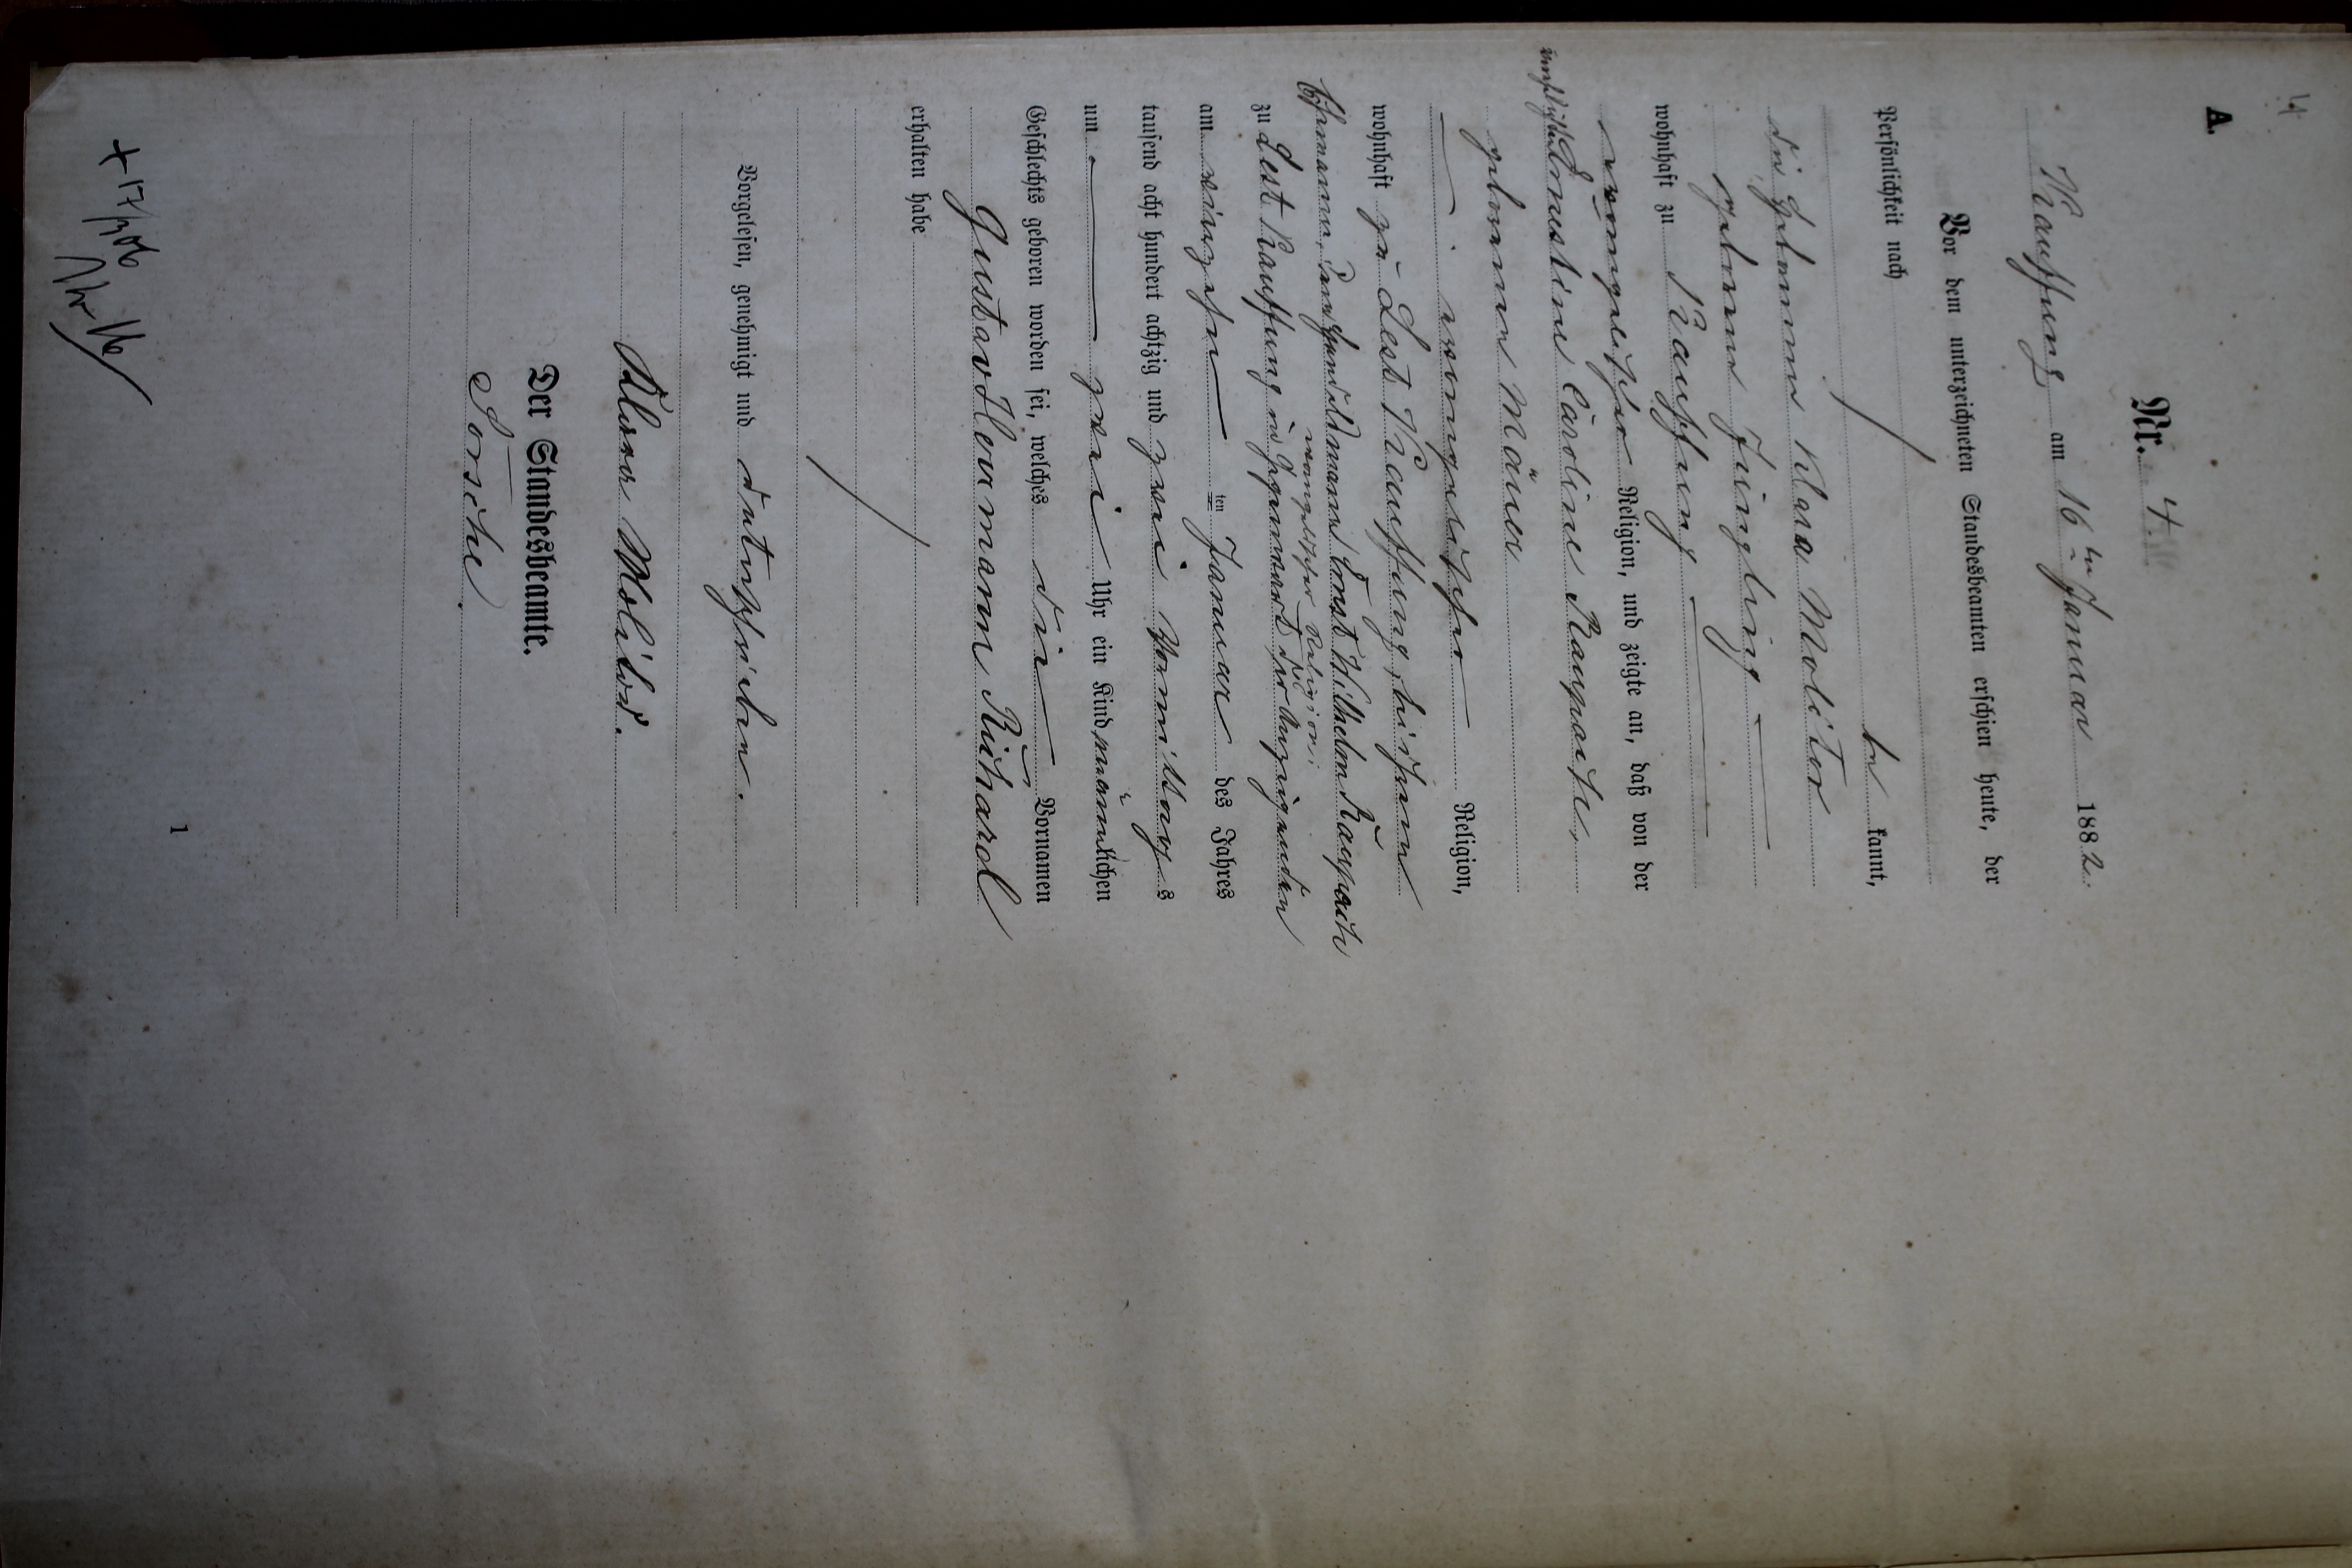 4
A.
Nr. 4.
Kauffung am 16ten Januar 1882.
Vor dem unterzeichneten Standesbeamten erschien heute, der
Persönlichkeit nach be kannt,
die Hebamme Klara Molitor
geborene Jüngling
wohnhaft zu Kauffung
evangelischer Religion, und zeigte an, daß von der
verehelichten Ernestine Caroline Raupach,
geborene Mäuer
evangelischer Religion,
wohnhaft zu Lest Kauffung, bei ihrem
Ehemanne, dem Handelsmann Ernst Wilhelm Raupach
evangelischer Religion;
zu Lest Kauffung in Gegenwart der Anzeigenden
am vierzehn ten Januar des Jahres
tausend acht hundert achtzig und zwei Vormittags
um zwei Uhr ein Kind männlichen
Geschlechts geboren worden sei, welches die Vornamen
Gustav Hermann Richard
erhalten habe
Vorgelesen, genehmigt und unterschrieben.
Klara Molitor.
Der Standesbeamte.
1